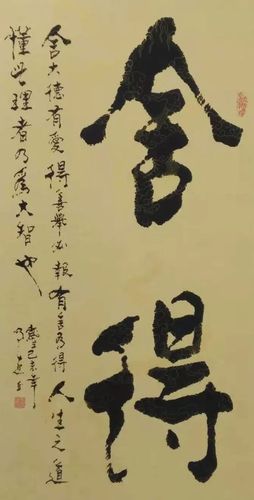 舍得
舍大德有爱得善举必报有舍乃得人生之道
懂此理者乃为大智也
岁己亥年